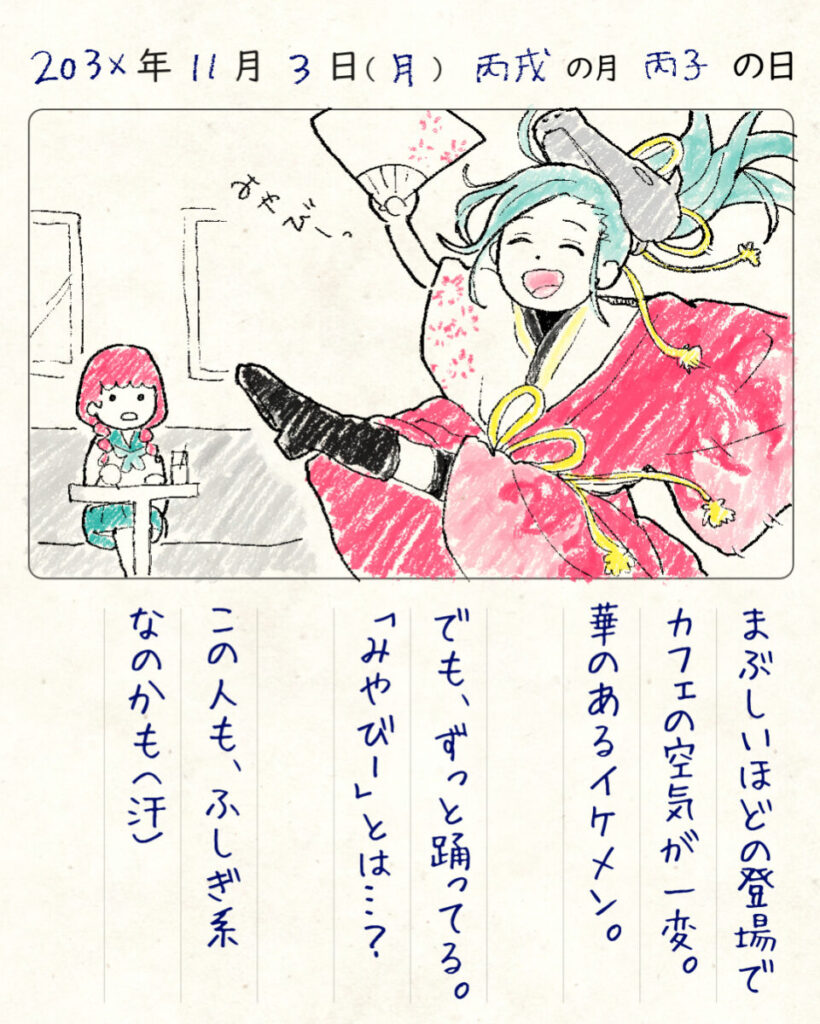 203X年 11月 3日(月) 丙戌の月 丙子の日
みやびーっ
まぶしいほどの登場で
カフェの空気が一変。
華のあるイケメン。
でも、ずっと踊ってる。
「みやびー」とは…?
この人も、ふしぎ系
なのかも(汗)